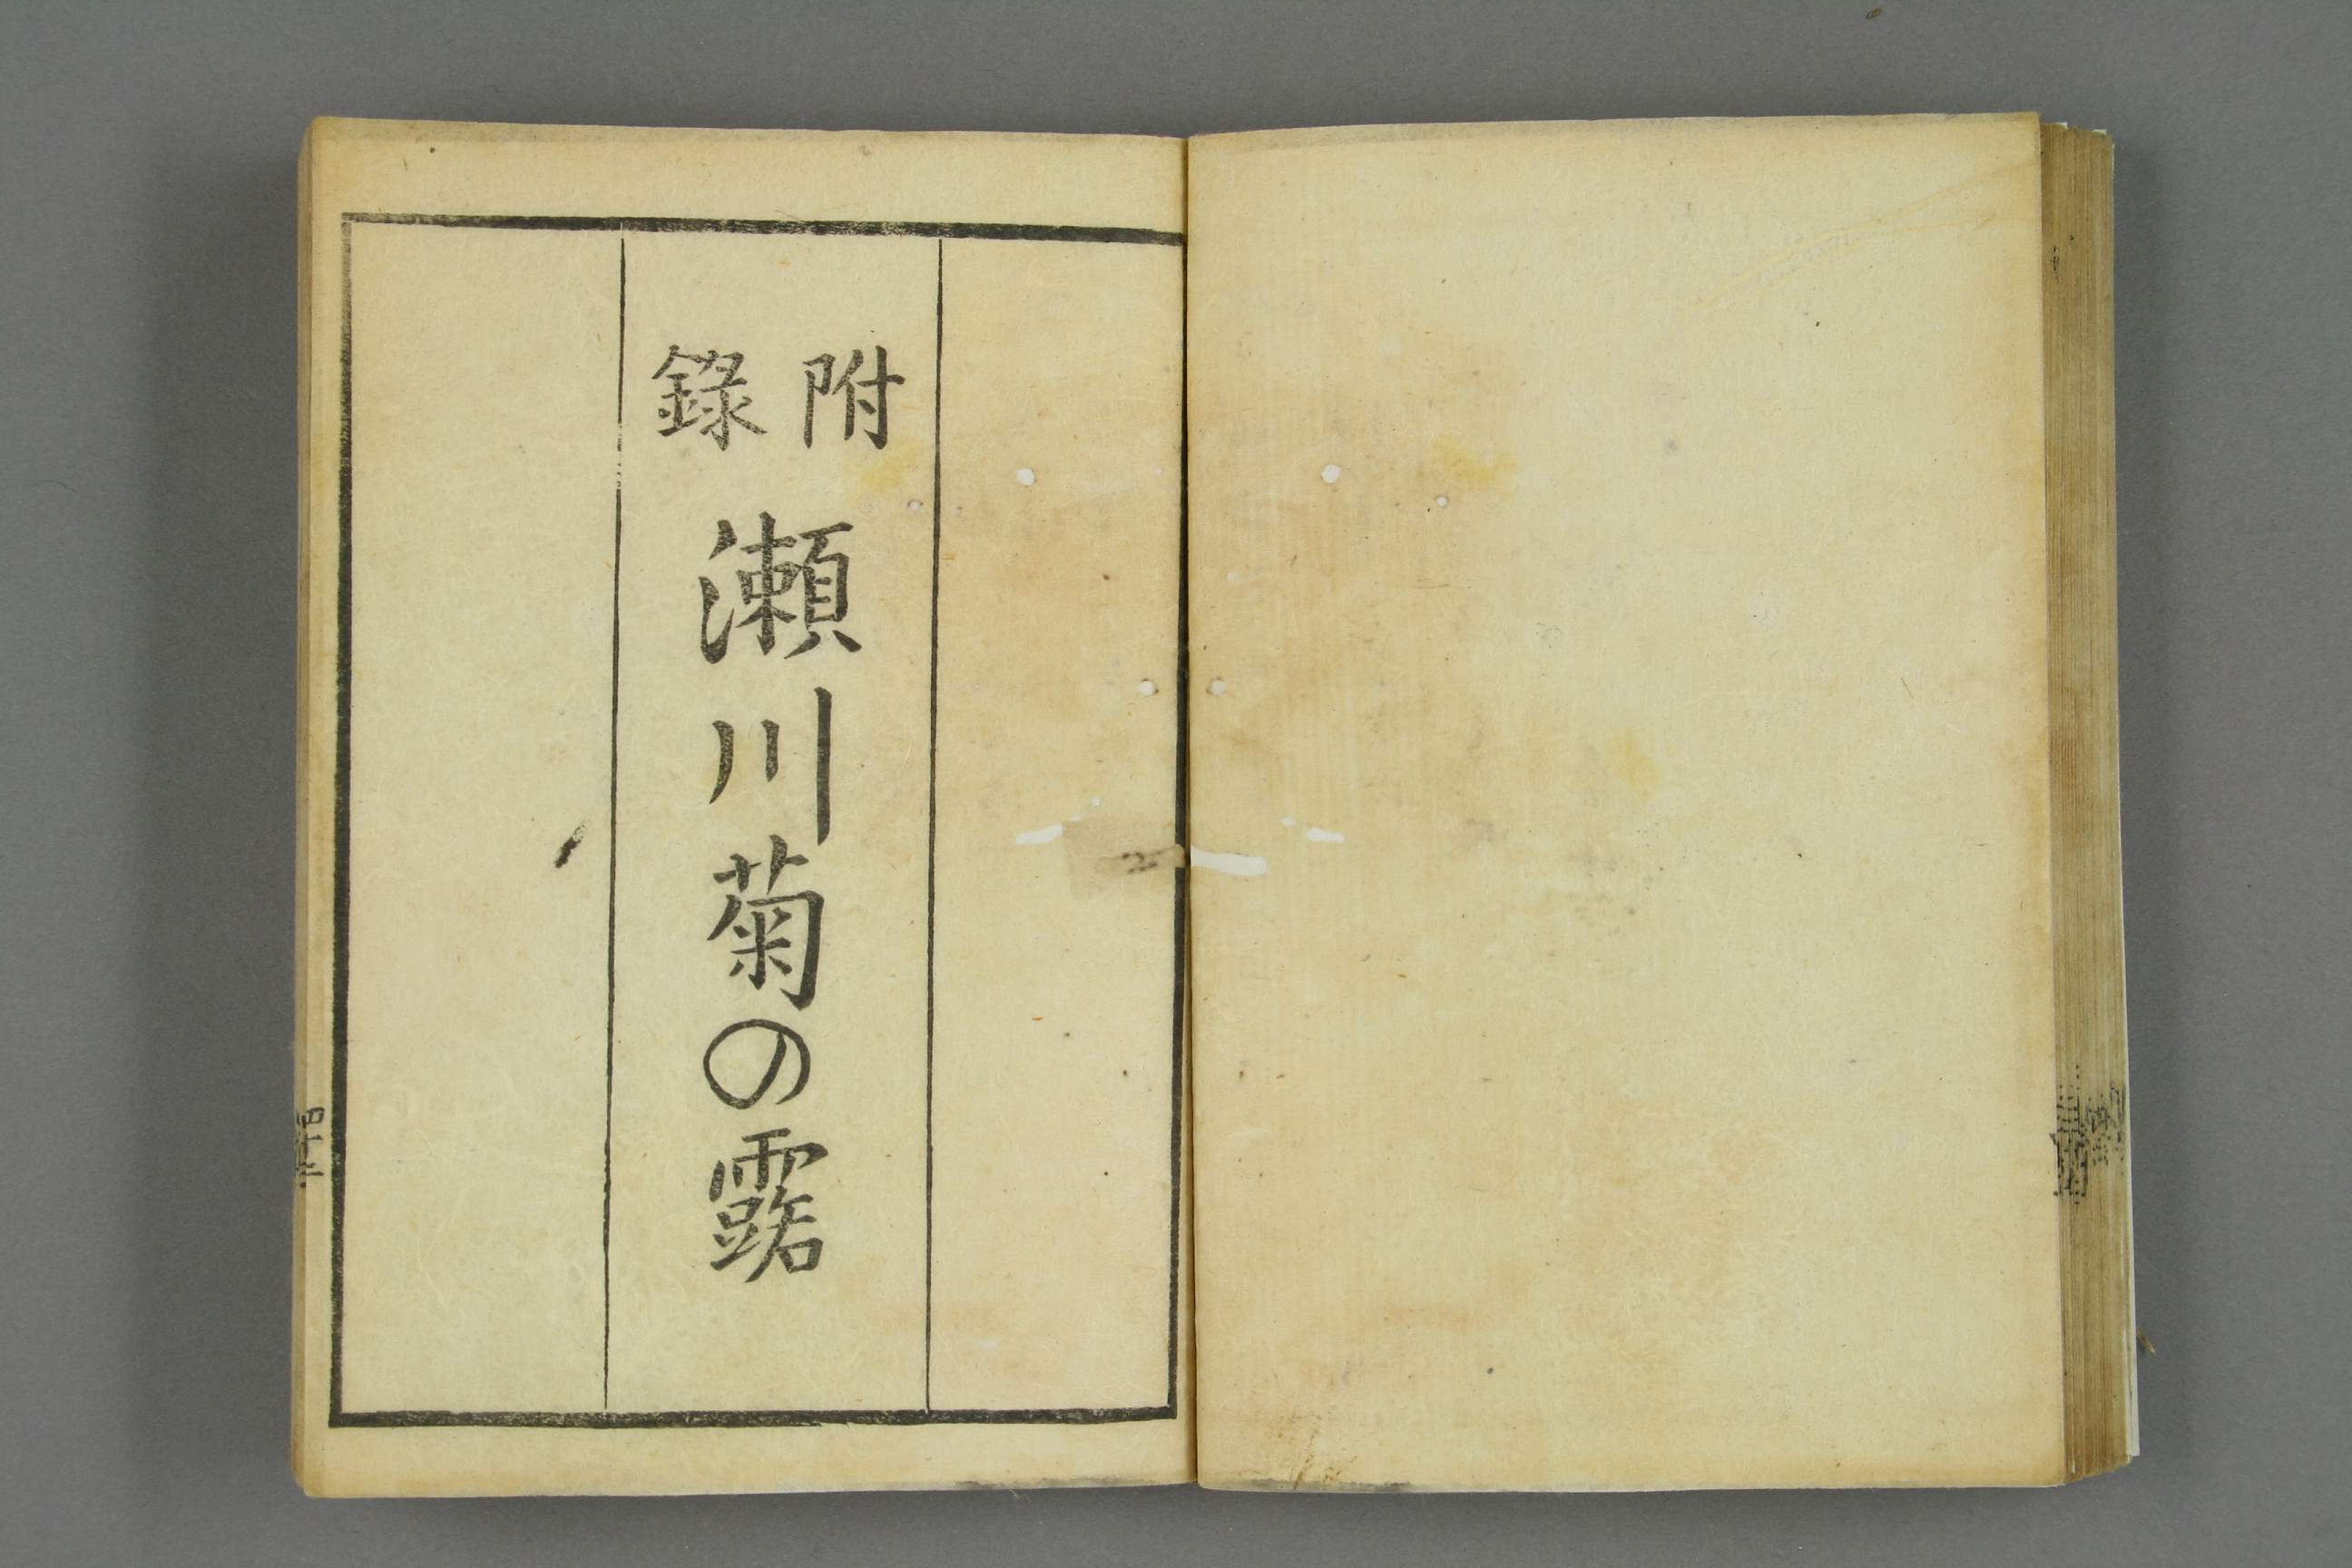 附錄
瀬川菊の露